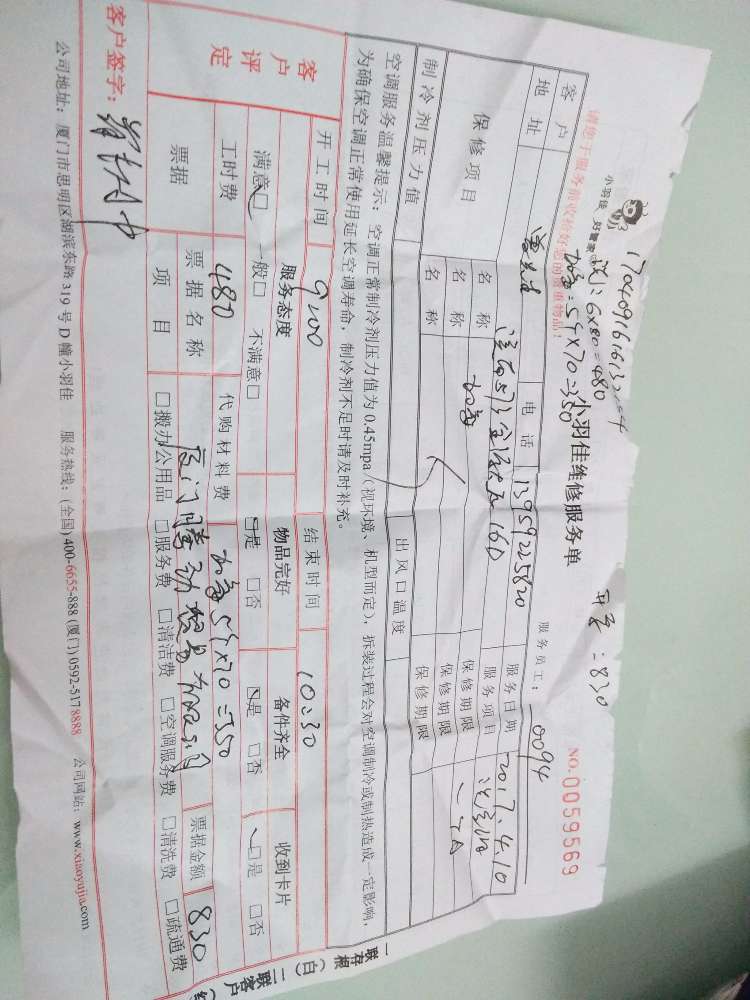 小羽佳 好管家
请您于服务前收拾好您的贵重物品!
洗:6×80=480
加氟:5个×70=350
=830
小羽佳维修服务单
NO.0059569
服务员工: 0094
客户
电话 13959225820
服务日期 2017.4.10
地址
服务项目
保修项目
名称 加氟 保修期限 一个月
名称 保修期限
名称 保修期限
制冷剂压力值 出风口温度
空调服务温馨提示:空调正常制冷剂压力值为0.45mpa(视环境、机型而定),拆装过程会对空调制冷或制热造成一定影响,
为确保空调正常使用延长空调寿命,制冷剂不足时请及时补充。
开工时间 9:00 结束时间 10:30
客户评定
服务态度 物品完好 备件齐全 收到卡片
满意□ 一般□ 不满意□ □是 □否 □是 □否 □是 □否
工时费 480 代购材料费 加氟5个×70=350
票据 票据名称 票据金额 830
项目 □搬办公用品 □服务费 □清洁费 □空调服务费 □清洗费 □疏通费
客户签字:
公司地址:厦门市思明区湖滨东路319号D幢小羽佳 服务热线:(全国)400-6655-888 (厦门)0592-5178888 公司网站:www.xiaoyujia.com
一联存根(白) 二联客户